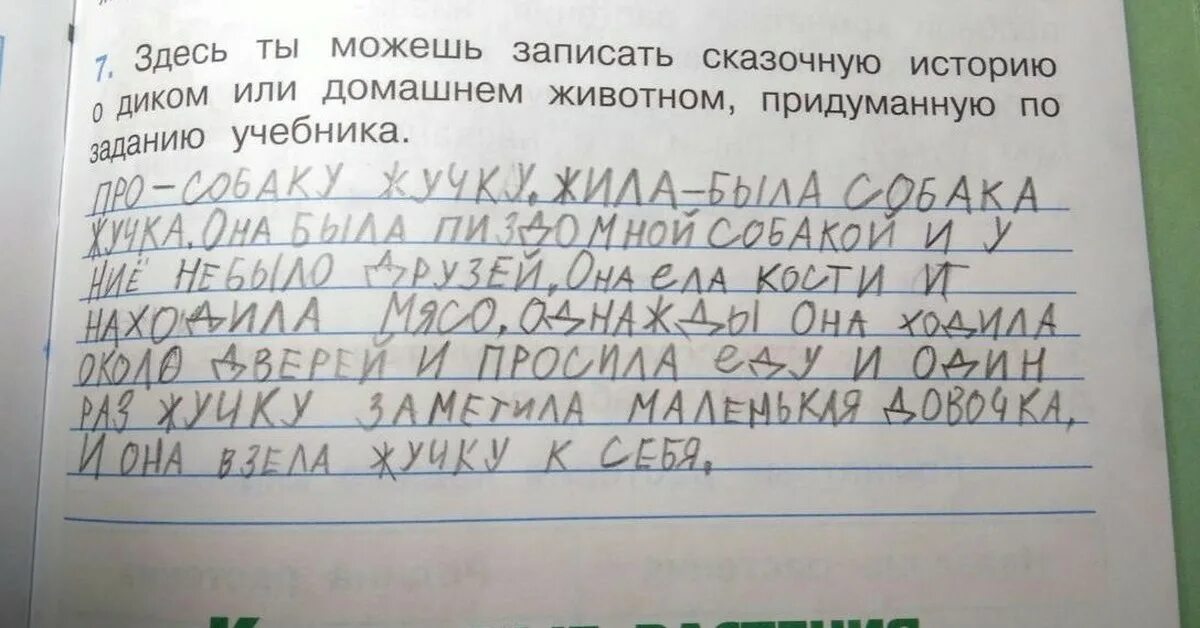 7. Здесь ты можешь записать сказочную историю
о диком или домашнем животном, придуманную по
заданию учебника.
ПРО-СОБАКУ ЖУЧКУ. ЖИЛА-БЫЛА СОБАКА
ЖУЧКА. ОНА БЫЛА ПИЗДОМНОЙ СОБАКОЙ И У
НИЁ НЕБЫЛО ДРУЗЕЙ. ОНА ЕЛА КОСТИ И
НАХОДИЛА МЯСО. ОДНАЖДЫ ОНА ХОДИЛА
ОКОЛО ДВЕРЕЙ И ПРОСИЛА ЕДУ И ОДИН
РАЗ ЖУЧКУ ЗАМЕТИЛА МАЛЕНЬКАЯ ДОВОЧКА,
И ОНА ВЗЕЛА ЖУЧКУ К СЕБЯ.